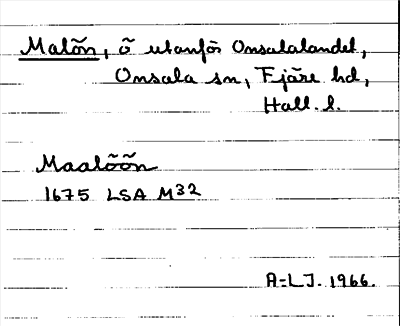 Malön, ö utanför Onsalalandet,
Onsala sn, Fjäre hd,
Hall. l.
Maalöön
1675 LSA M32
A-LJ. 1966.